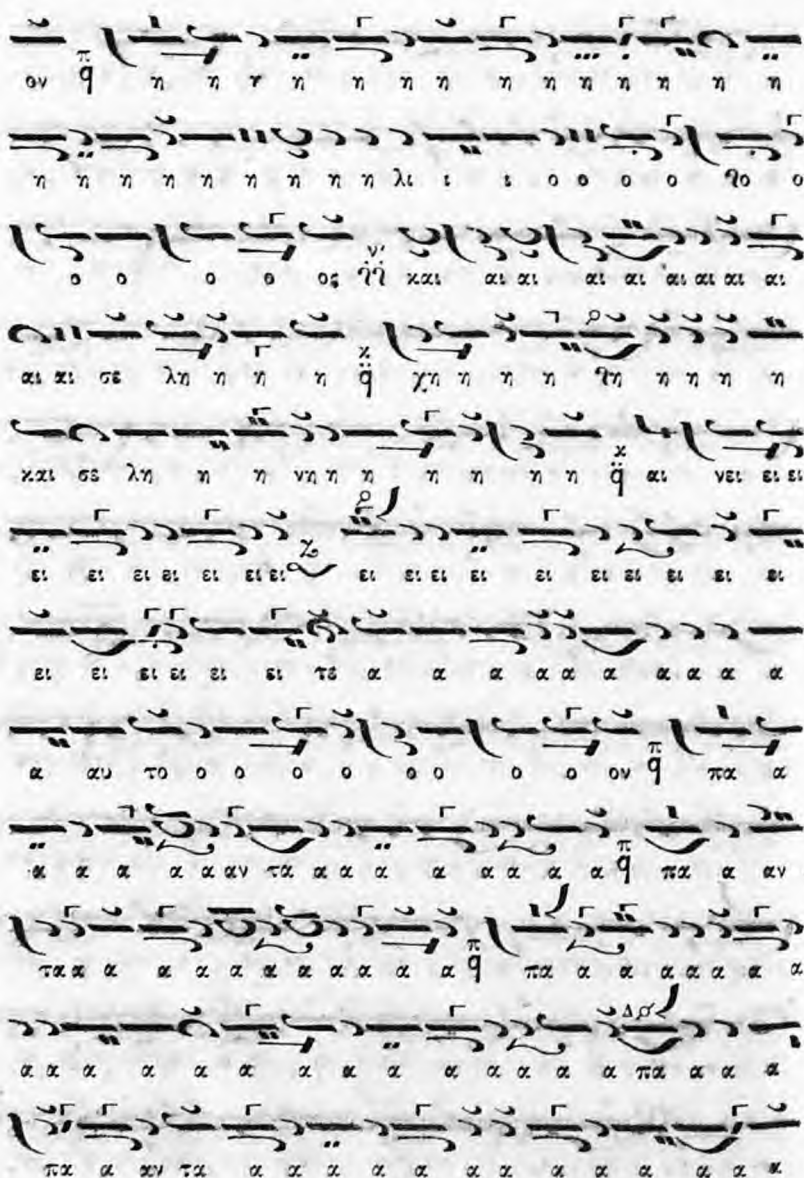 ον π q η η γ η η η η η η η η η η η η
η η η η η η η η η λι ι ι ο ο ο ο ο ο
ο ο ο ο ος νʹ και αι αι αι αι αι αι αι αι
αι αι σε λη η η η κ q χη η η η η η η η
και σε λη η η νη η η η η η η κ q αι νει ει ει
ει ει ει ει ει ει ει ει ει ει ει ει ει ει ει ει ει
ει ει ει ει ει ει τε α α α α α α α α α
α αυ το ο ο ο ο ο ο ο ο ον π q πα α
α α α α α αν τα α α α α α α α α π q πα α αν
τα α α α α α α α α α α π q πα α α α α α α α
α α α α α α α α α α α α α α πα α α α
πα α αν τα α α α α α α α α α α α